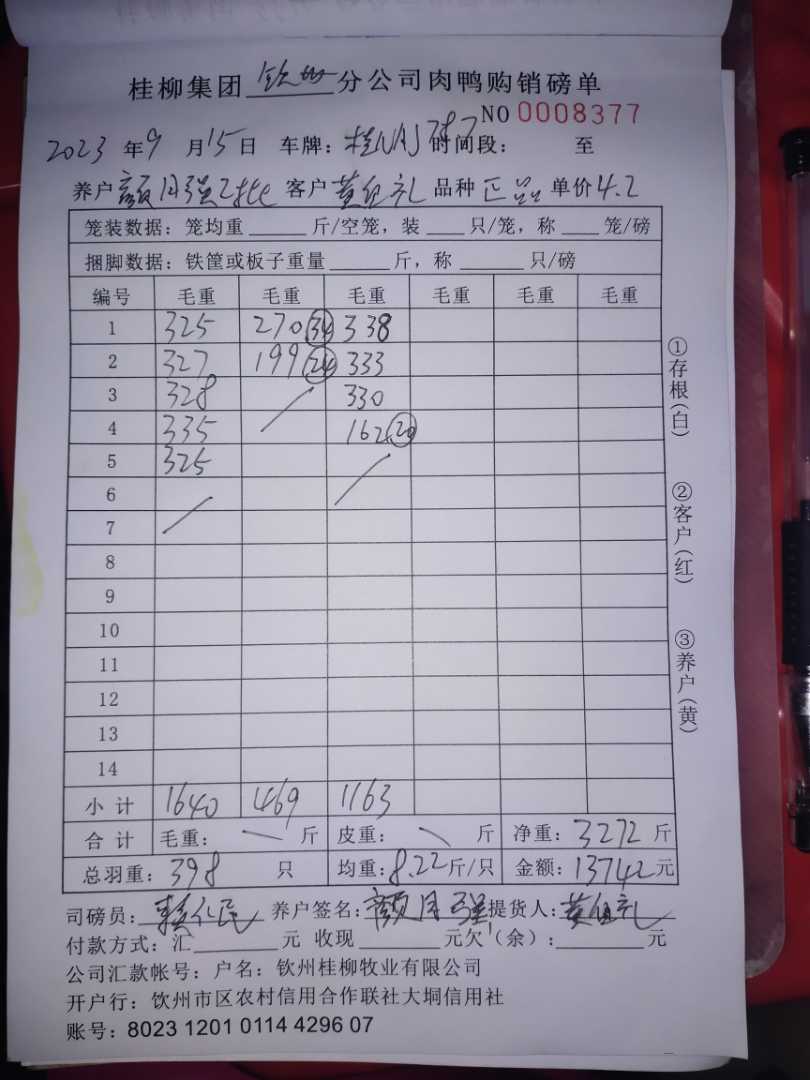 桂柳集团 钦州 分公司肉鸭购销磅单
NO 0008377
2023 年 9 月 15 日 车牌: 桂N 时间段: 至
养户 颜月强 客户 黄 礼 品种 正品 单价 4.2
笼装数据: 笼均重 ____ 斤/空笼, 装 ____ 只/笼, 称 ____ 笼/磅
捆脚数据: 铁筐或板子重量 ____ 斤, 称 ____ 只/磅
编号 毛重 毛重 毛重 毛重 毛重 毛重
1 325 270 34 338
2 327 199 24 333
3 328 330
4 335 162 20
5 325
6
7
8
9
10
11
12
13
14
小计 1640 469 1163
合计 毛重: 斤 皮重: 斤 净重: 3272 斤
总羽重: 398 只 均重: 8.22 斤/只 金额: 13742 元
司磅员: 养户签名: 颜月强 提货人: 黄 礼
付款方式: 汇 ____ 元 收现 ____ 元欠(余): ____ 元
公司汇款帐号: 户名: 钦州桂柳牧业有限公司
开户行: 饮州市区农村信用合作联社大垌信用社
账号: 8023 1201 0114 4296 07
①存根(白)
②客户(红)
③养户(黄)